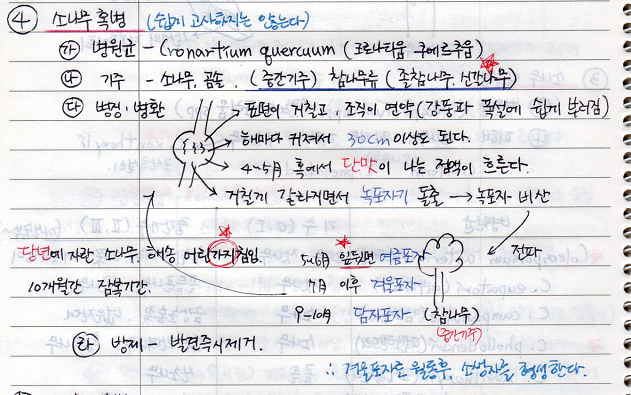 ④ 소나무 혹병 (쉽게 고사하지는 않는다)
㉮ 병원균 - Cronartium quercuum (크로나티움 쿠에르추움)
㉯ 기주 - 소나무, 곰솔. (중간기주) 참나무류 (졸참나무, 신갈나무)
㉰ 병징·병환
표면이 거칠고 조직이 연약 (강풍과 폭설에 쉽게 부러짐)
해마다 커져서 30cm 이상도 된다.
4~5月 혹에서 단맛이 나는 점액이 흐른다.
거칠게 갈라지면서 녹포자기 돌출 → 녹포자 비산
당년에 자란 소나무, 해송, 어린가지침입.
10개월간 잠복기간.
5~6月 잎뒷면 여름포자
7月 이후 겨울포자
9-10月 담자포자
전파
(참나무)
(중간기주)
㉱ 방제 - 발견즉시제거.
∴ 겨울포자로 월동후, 소생자를 형성한다.